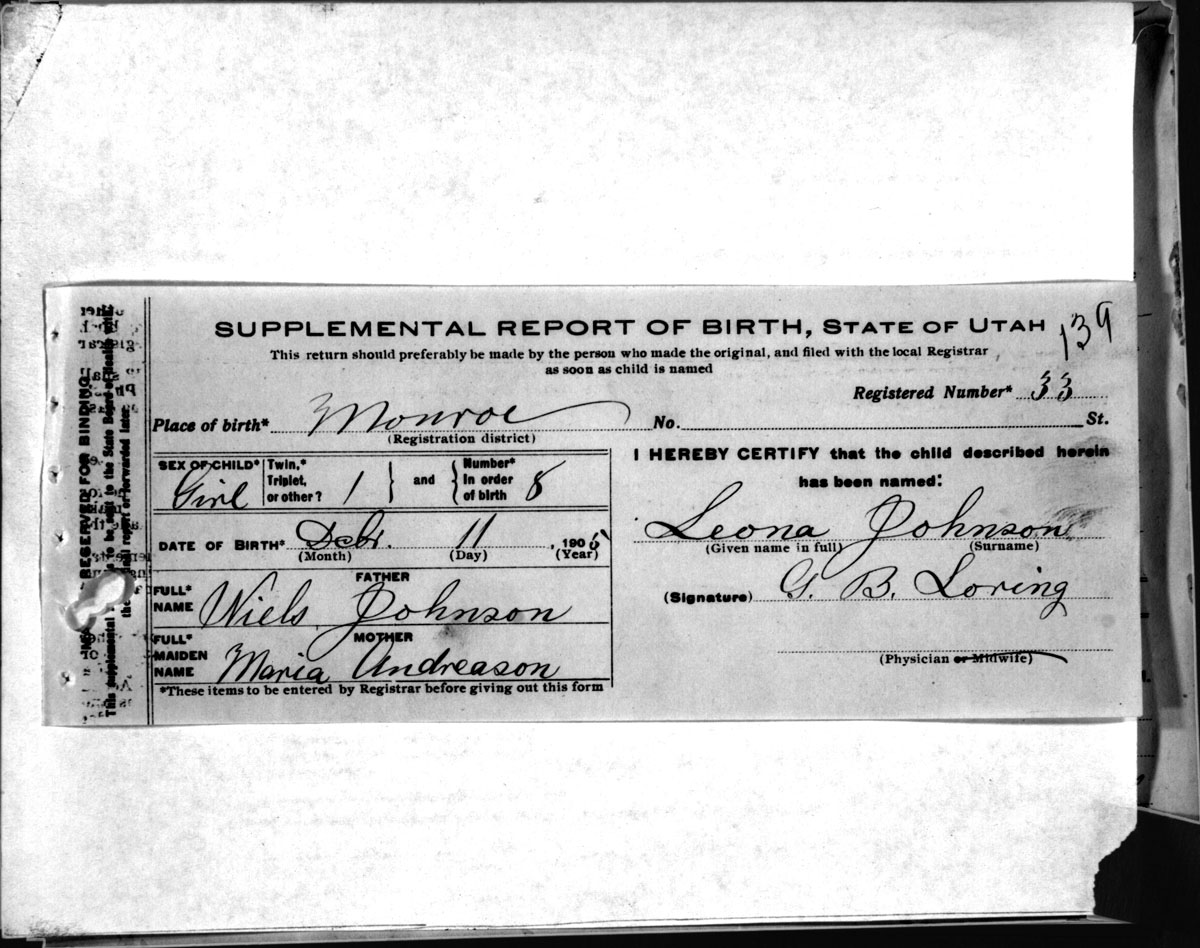 SUPPLEMENTAL REPORT OF BIRTH, STATE OF UTAH
139
This return should preferably be made by the person who made the original, and filed with the local Registrar
as soon as child is named
Registered Number* 33
Place of birth* Monroe No. St.
(Registration district)
SEX OF CHILD* Girl
Twin,*
Triplet,
or other? 1
and
Number*
in order
of birth 8
DATE OF BIRTH* 11, 190
(Month) (Day) (Year)
FATHER
FULL*
NAME Niels Johnson
MOTHER
FULL*
MAIDEN
NAME Maria Andreason
*These items to be entered by Registrar before giving out this form
I HEREBY CERTIFY that the child described herein
has been named:
Leona Johnson
(Given name in full) (Surname)
(Signature) G. B. Loring
(Physician or Midwife)
RESERVED FOR BINDING